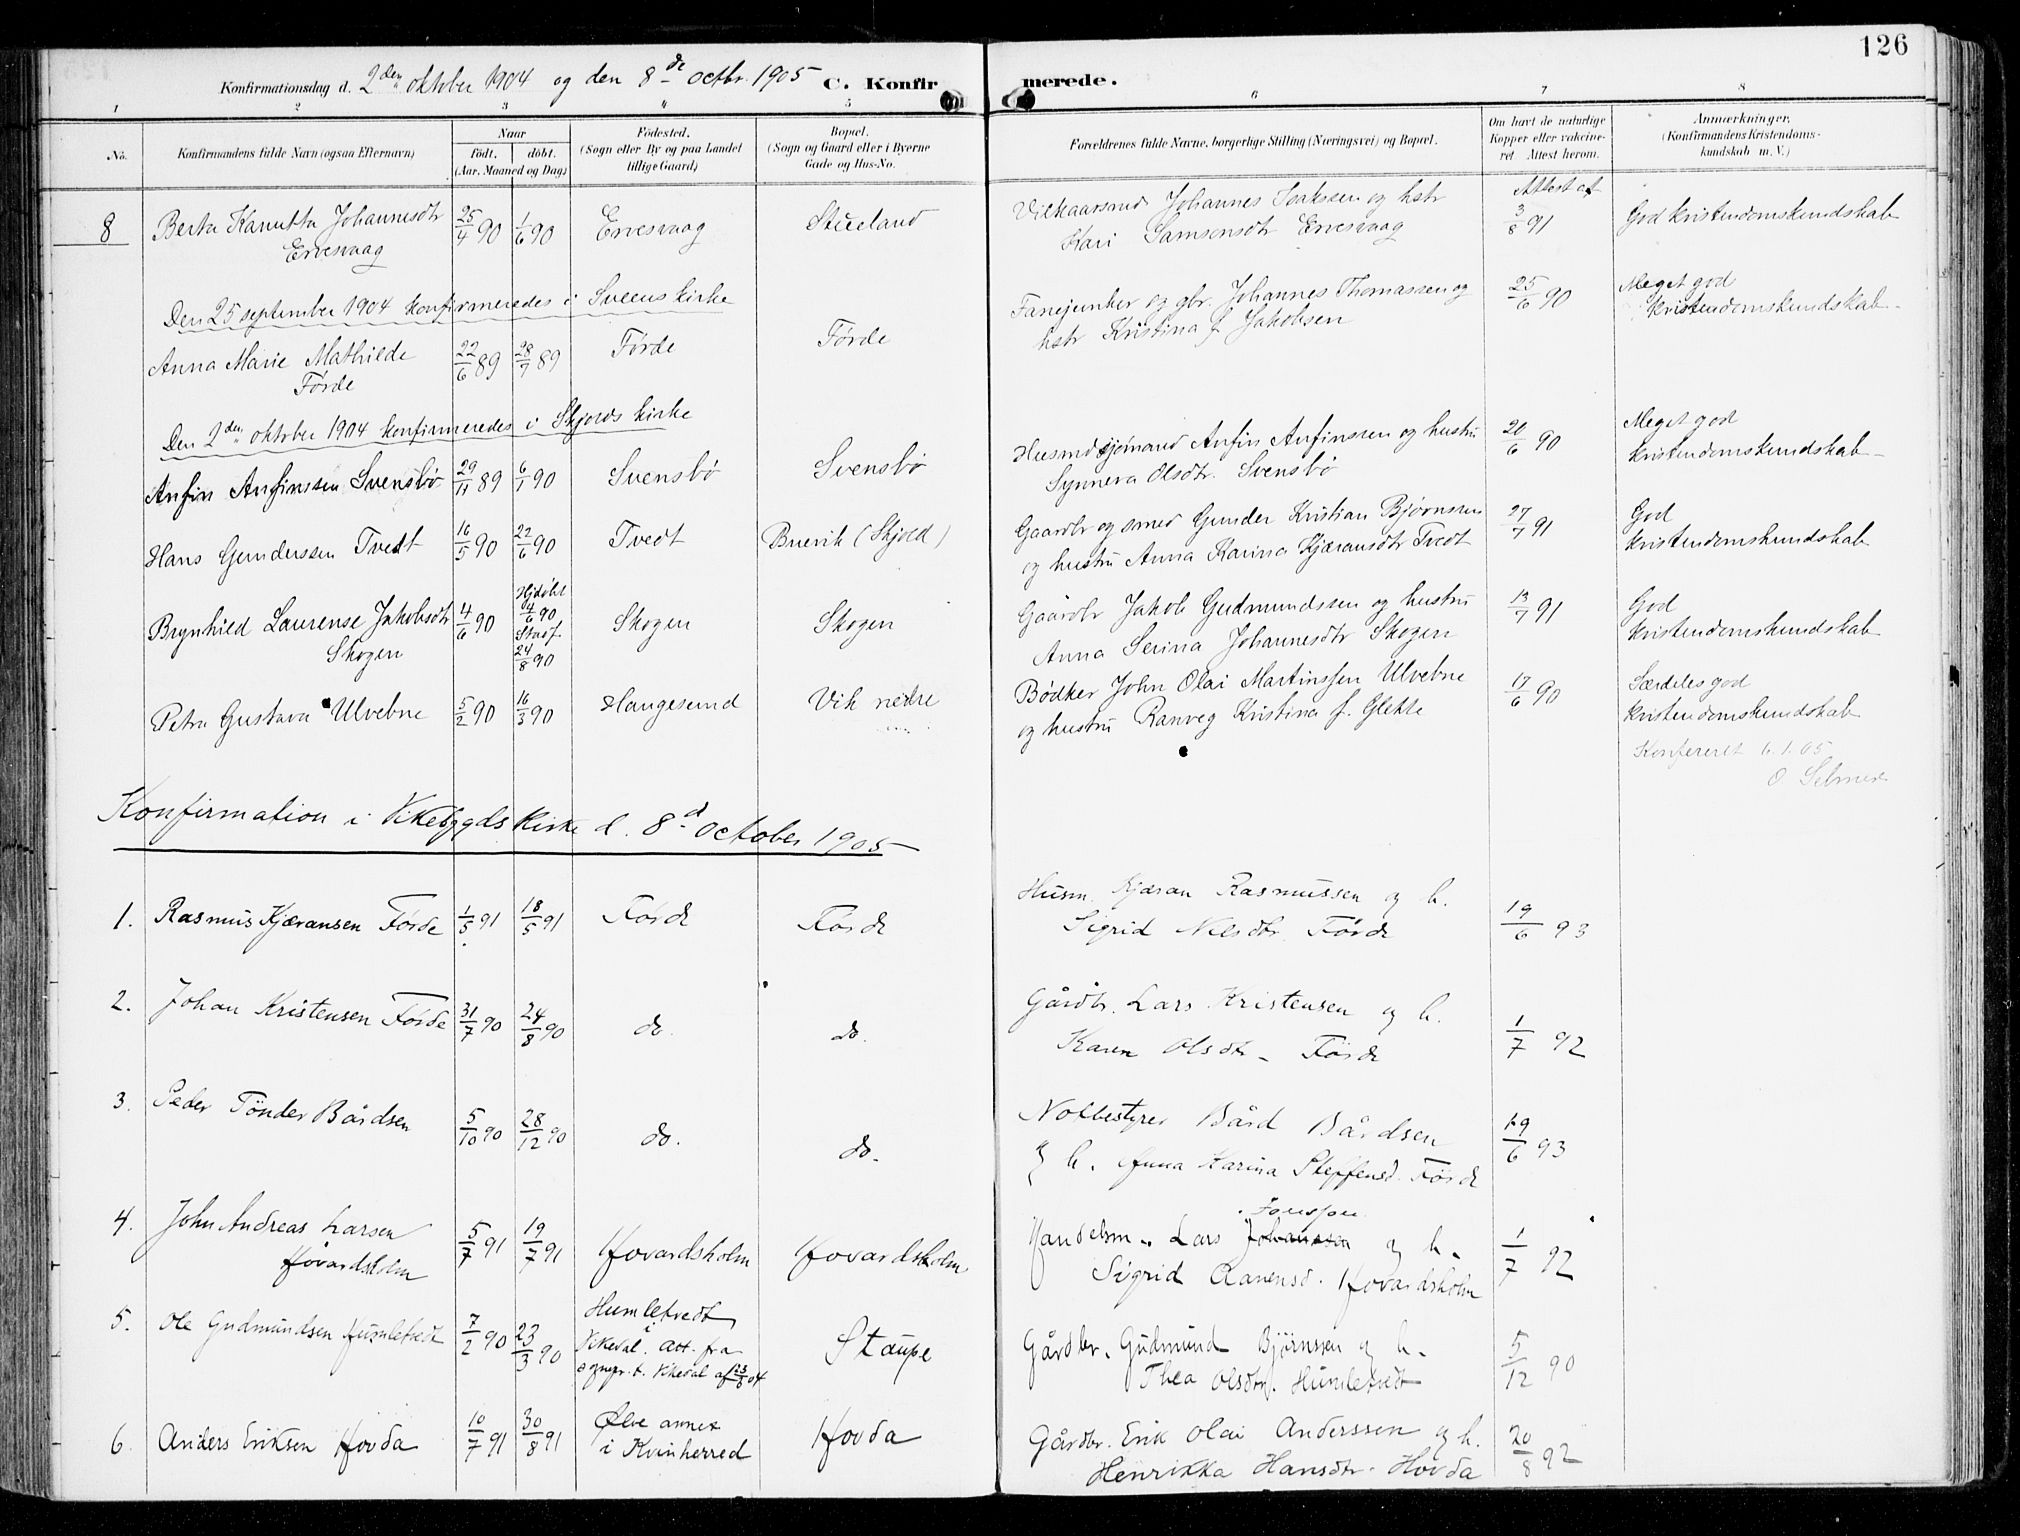 126
Konfirmationsdag d. 2den oktober 1904 og den 8de octbr. 1905 C. Konfirmerede.
1 2 3 4 5 6 7 8
No. Konfirmandens fulde Navn (ogsaa Efternavn) Naar født. døbt. (Aar, Maaned og Dag) Fødested. (Sogn eller By og paa Landet tillige Gaard) Bopæl. (Sogn og Gaard eller i Byerne Gade og Hus-No. Forældrenes fulde Navne, borgerlige Stilling (Næringsvei) og Bopæl. Om havt de naturlige Kopper eller vakcineret Attest herom. Anmærkninger. (Konfirmandens Kristendomskundskab m. V.)
8 Berta Kanutta Johannesdtr Ervesvaag 25/4 90 1/6 90 Ervesvaag Stueland Vilkaarsmd Johannes Isaksen og hstr Kari Samsonsdtr Ervesvaag Attest af 3/8 91 God kristendomskundskab
Den 25 september 1904 konfirmeredes i Sveens kirke
Anna Marie Mathilde Førde 22/6 89 28/7 89 Førde Førde Fanejunker og gbr. Johannes Thomassen og hstr Kristina f. Jakobsen 25/6 90 Meget god kristendomskundskab
Den 2den oktober 1904 konfirmeredes i Skjolds kirke
Anfin Anfinssen Svensbø 29/11 89 6/1 90 Svensbø Svensbø Husmd sjømand Anfin Anfinssen og hustru Synneva Olsdtr. Svensbø 20/6 90 Meget god kristendomskundskab
Hans Gunderssen Tvedt 16/5 90 22/6 90 Tvedt Bruvik (Skjold) Gaardbr og smed Gunder Kristian Bjørnssen og hustru Anna Karina Kjæransdtr Tvedt 27/7 91 God kristendomskundskab
Brynhild Laurense Jakobsdtr Skogen 4/6 90 Hjdøbt 4/6 90 Stadf. 24/8 90 Skogen Skogen Gaardbr Jakob Gudmundssen og hustru Anna Serina Johannesdtr Skogen 13/7 91 God kristendomskundskab
Petra Gustava Ulvebne 5/2 90 16/3 90 Haugesund Vik nedre Bødker John Olai Martinssen Ulvebne og hustru Ranveg Kristina f. Glette 17/6 90 Særdeles god kristendomskundskab
Konfereret 6.1.05
O Selmer
Konfirmation i Vikebygds kirke d. 8d October 1905
1. Rasmus Kjæransen Førde 1/5 91 18/5 91 Førde Førde Husm. Kjæran Rasmussen og h. Sigrid Nilsdtr. Førde 19/6 93
2. Johan Kristensen Førde 31/7 90 24/8 90 do. do. Gårdbr. Lars Kristensen og h. Karen Olsdtr. Førde 1/7 92
3. Peder Tönder Bårdsen 5/10 90 28/12 90 do. do. Notbestyrer Bård Bårdsen & h. Anna Karina Steffensd. Førde 19/6 93
4. John Andreas Larsen Hovardsholm 5/7 91 19/7 91 Hovardsholm Hovardsholm Handelsm. Lars Johanssen og h. Sigrid Aanensd. Hovardsholm 1/7 92
5. Ole Gudmundsen Humletvedt 7/2 90 23/3 90 Humletvedt i Vikedal. Att. fra sognpr. t. Vikedal af 23/8 04 Staupe Gårdbr. Gudmund Bjørnsen og h. Thea Olsdtr. Humletvedt 5/12 90
6. Anders Eriksen Hovda 10/7 91 30/8 91 Ølve annex i Kvinherred Hovda Gårdbr. Erik Olai Anderssen og h. Henrikka Hansdtr. Hovda 20/8 92